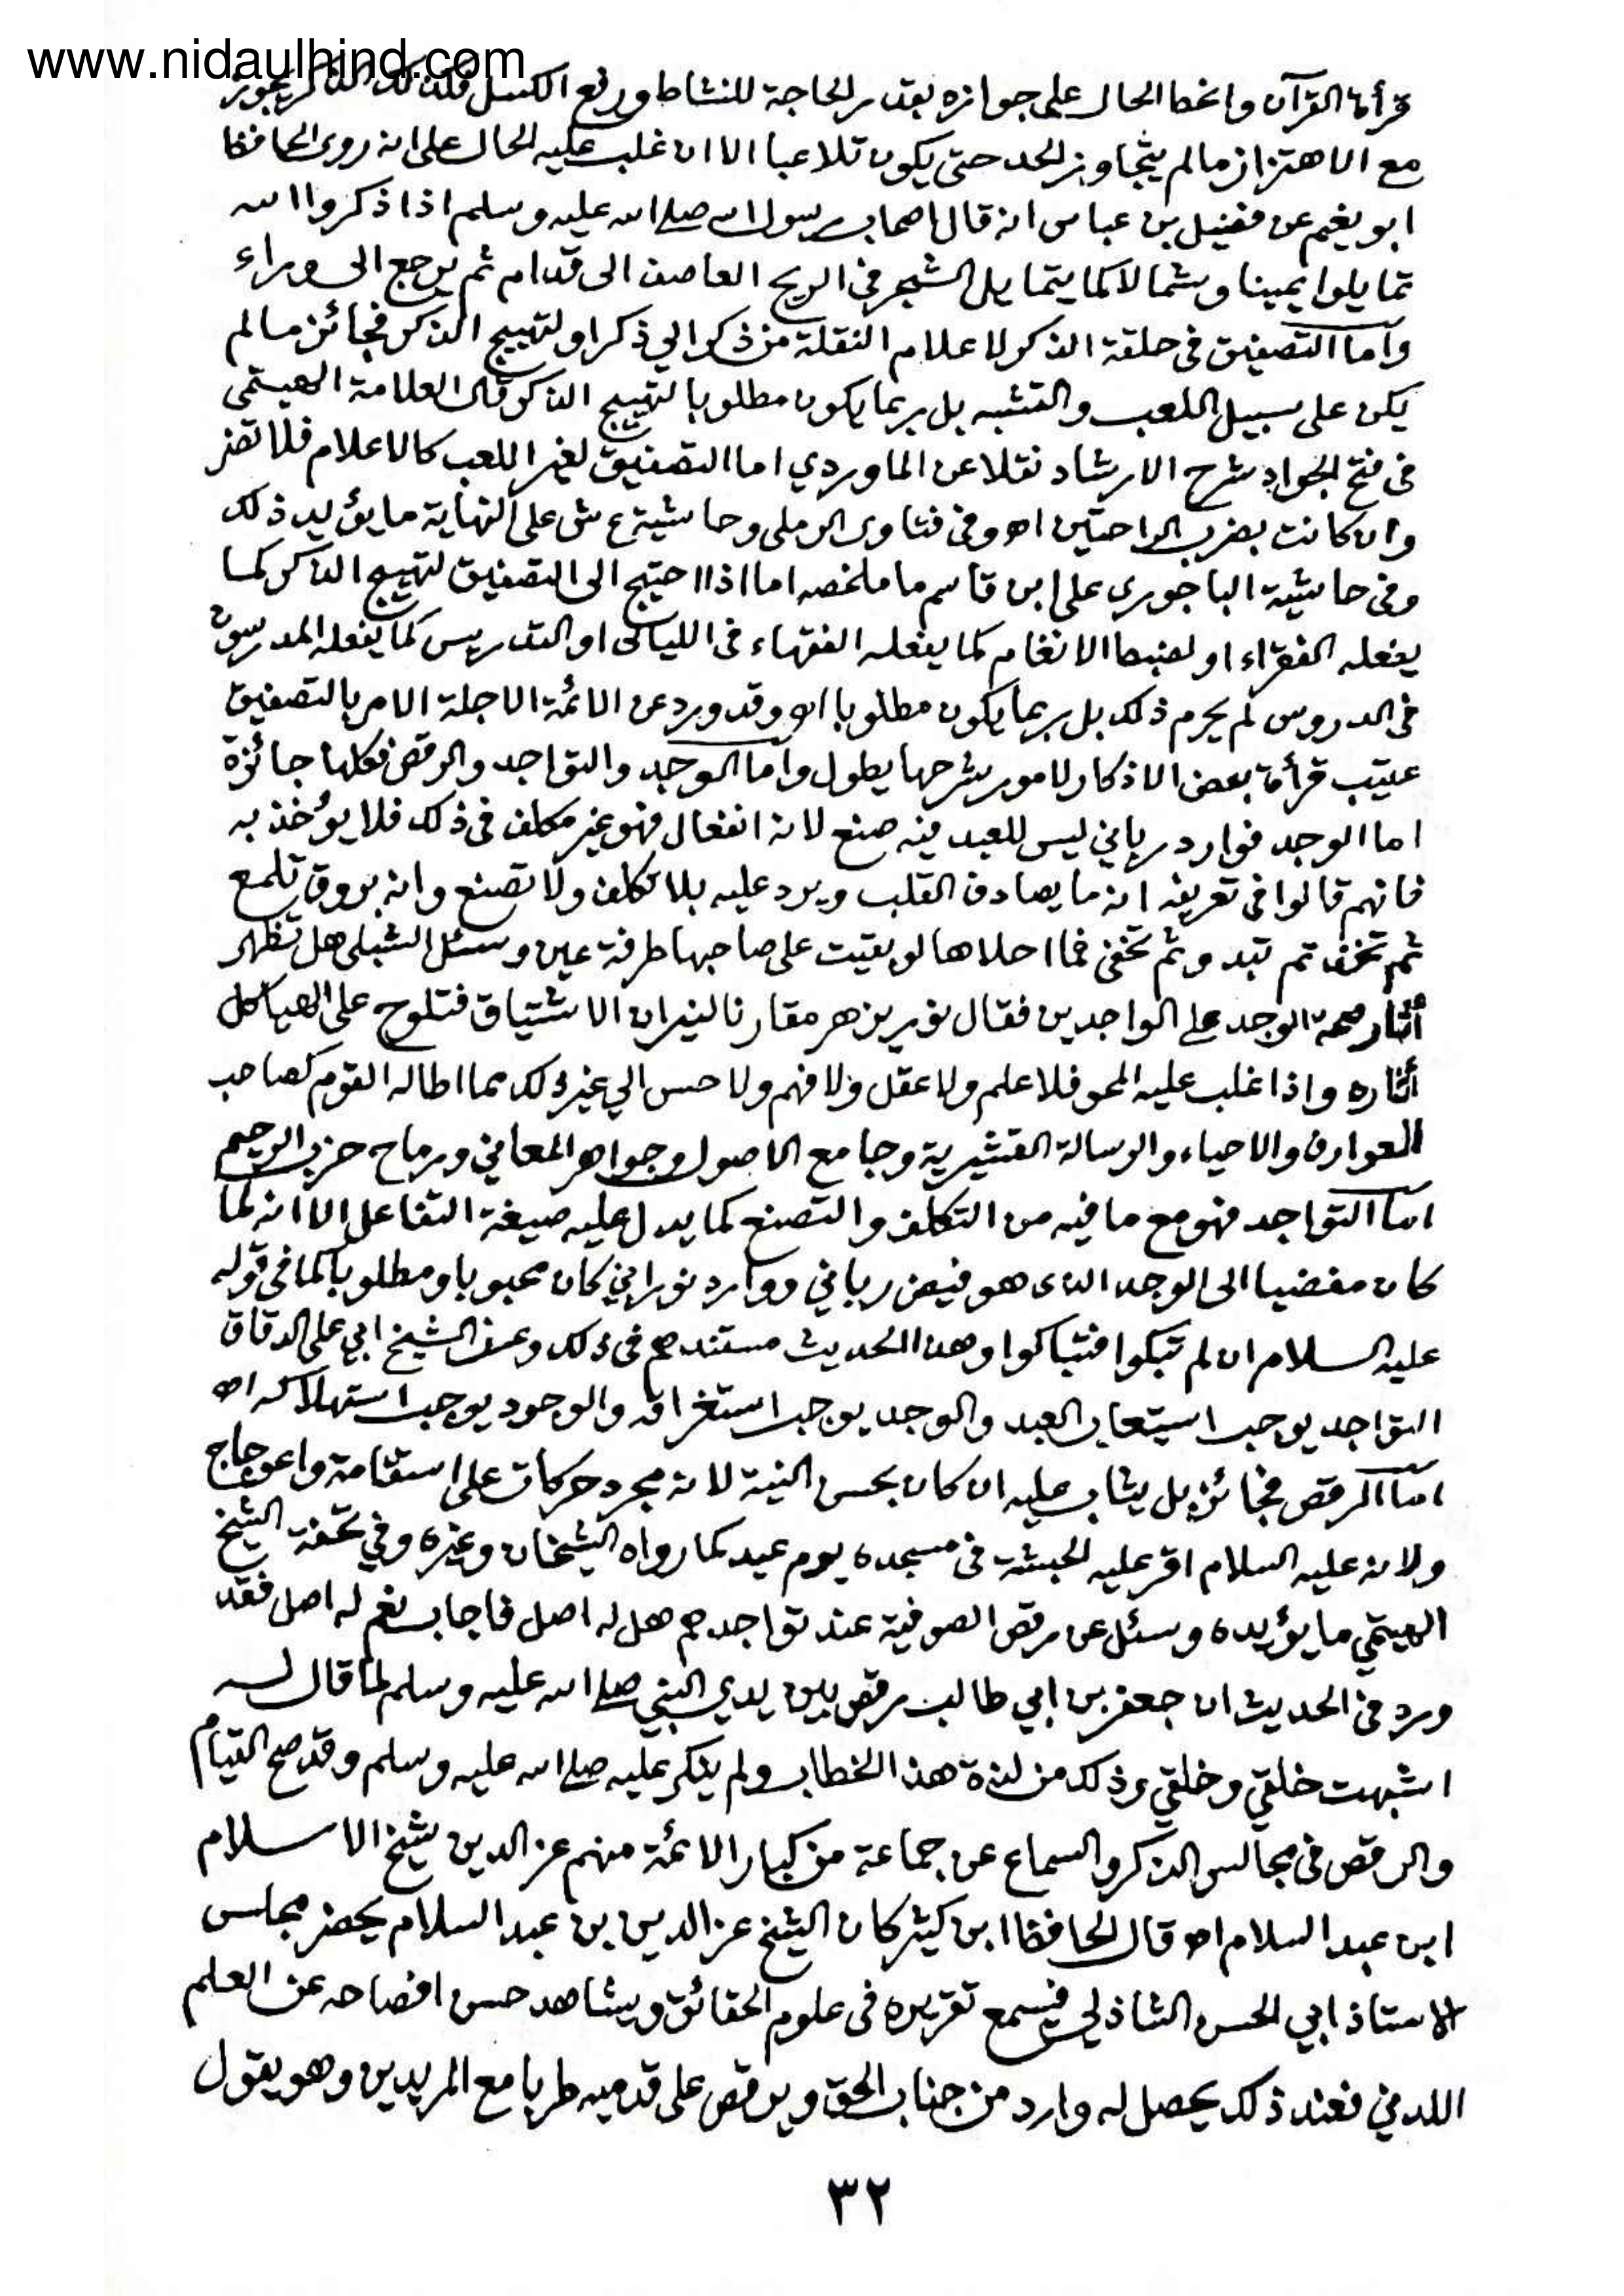 www.nidaulhind.com
قرأة القرآن وانحطا الحال على جوازه بقدر الحاجة للنشاط ورفع الكسل فكذلك الذاكر يجوز
مع الاهتزاز مالم يتجاوز الحد حتى يكون تلاعبا الا ان غلب عليه الحال على انه روى الحافظ
ابو نعيم عن فضيل بن عباس انه قال اصحاب رسول الله صلى الله عليه وسلم اذا ذكروا الله
تمايلوا يمينا وشمالا كما يتمايل الشجر في الريح العاصف الى قدام ثم يرجع الى وراء
وأما التصفيق في حلقة الذكر لاعلام النقلة من ذكر الي ذكر او لتهييج الذكر فجائز مالم
يكن على سبيل اللعب والتشبه بل ربما يكون مطلوبا لتهييج الذكر قال العلامة الهيتمي
في فتح الجواد شرح الارشاد نقلا عن الماوردي اما التصفيق لغير اللعب كالاعلام فلا تضر
وان كانت بضرب الراحتين اه وفي فتاوى الرملي وحاشية ع ش على النهاية ما يؤيد ذلك
وفي حاشية الباجوري على ابن قاسم ما ملخصه اما اذا احتيج الى التصفيق لتهييج الذاكر كما
يفعله الفقراء او لضبط الانغام كما يفعله الفقهاء في الليالى او التدريس كما يفعله المدرسون
في الدروس لم يحرم ذلك بل ربما يكون مطلوبا اه وقد ورد عن الائمة الاجلة الامر بالتصفيق
عقيب قرأة بعض الاذكار لامور شرحها يطول وأما الوجد والتواجد والرقص فكلها جائزة
اما الوجد فوارد رباني ليس للعبد فيه صنع لانه انفعال فهو غير مكلف في ذلك فلا يؤخذ به
فانهم قالوا في تعريفه انه ما يصادف القلب ويرد عليه بلا تكلف ولا تصنع وانه بروق تلمع
ثم تخمد ثم تبدو ثم تخفى فما احلاها لو بقيت على صاحبها طرفة عين وسئل الشبلى هل تظهر
أثار صحة الوجد على الواجدين فقال نور يزهر مقارنا لنيران الاشتياق فتلوح على الهياكل
أثاره واذا غلب عليه المحو فلا علم ولا عقل ولا فهم ولا حس الي غير ذلك مما اطاله القوم كصاحب
العوارف والاحياء والرسالة القشيرية وجامع الاصول وجواهر المعاني ورماح حزب الرحيم
اما التواجد فهو مع ما فيه من التكلف والتصنع كما يدل عليه صيغة التفاعل الا انه لما
كان مفضيا الى الوجد الذى هو فيض رباني ووارد نوراني كان محبوبا ومطلوبا كما في قوله
عليه السلام ان لم تبكوا فتباكوا وهذا الحديث مستندهم في ذلك وعن الشيخ ابي على الدقاق
التواجد يوجب استيعاب العبد والوجد يوجب استغراقه والوجود يوجب استهلاكه اه
اما الرقص فجائز بل يثاب عليه ان كان بحسن النية لانه مجرد حركات على استقامة واعوجاج
ولانه عليه السلام اقر عليه الحبشة في مسجده يوم عيد كما رواه الشيخان وغيره وفي تحفة الشيخ
الهيتمي ما يؤيده وسئل عن رقص الصوفية عند تواجدهم هل له اصل فاجاب نعم له اصل فقد
ورد في الحديث ان جعفر بن ابي طالب رقص بين يدي النبي صلى الله عليه وسلم لما قال له
اشبهت خلقي وخلقي وذلك من لذة هذا الخطاب ولم ينكر عليه صلى الله عليه وسلم وقد صح القيام
والرقص في مجالس الذكر والسماع عن جماعة من كبار الائمة منهم عز الدين شيخ الاسلام
ابن عبد السلام اه قال الحافظ ابن كثير كان الشيخ عز الدين بن عبد السلام يحضر مجلس
الاستاذ ابي الحسن الشاذلي فيسمع تقريره في علوم الحقائق ويشاهد حسن افصاحه عن العلم
اللدني فعند ذلك يحصل له وارد من جناب الحق ويرقص على قدميه طربا مع المريدين وهو يقول
٣٢